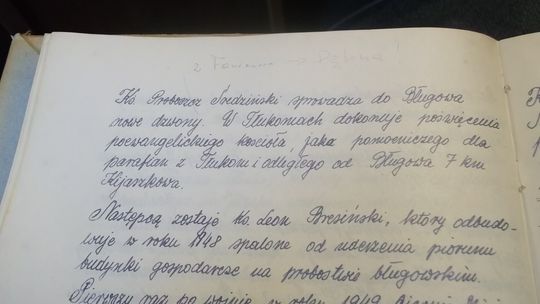 Ks. Proboszcz Średziński sprowadza do Bługowa
nowe dzwony. W Tłukomach dokonuje poświęcenia
poewangelickiego kościoła, jako pomocniczego dla
parafian z Tłukom i odległego od Bługowa 7 km
Kijaszkowa.
Następcą zostaje Ks. Leon Bresiński, który odbudo-
wuje w roku 1948 spalone od uderzenia pioruna
budynki gospodarcze na probostwie bługowskim.
Pierwszy raz po wojnie w roku 1949